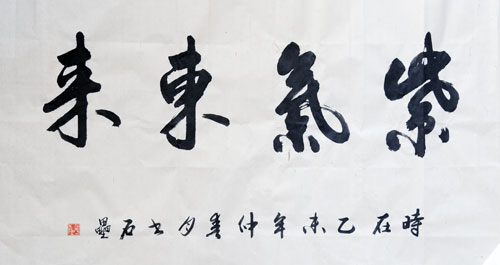 紫氣東来
時在乙未年仲春月书石壘